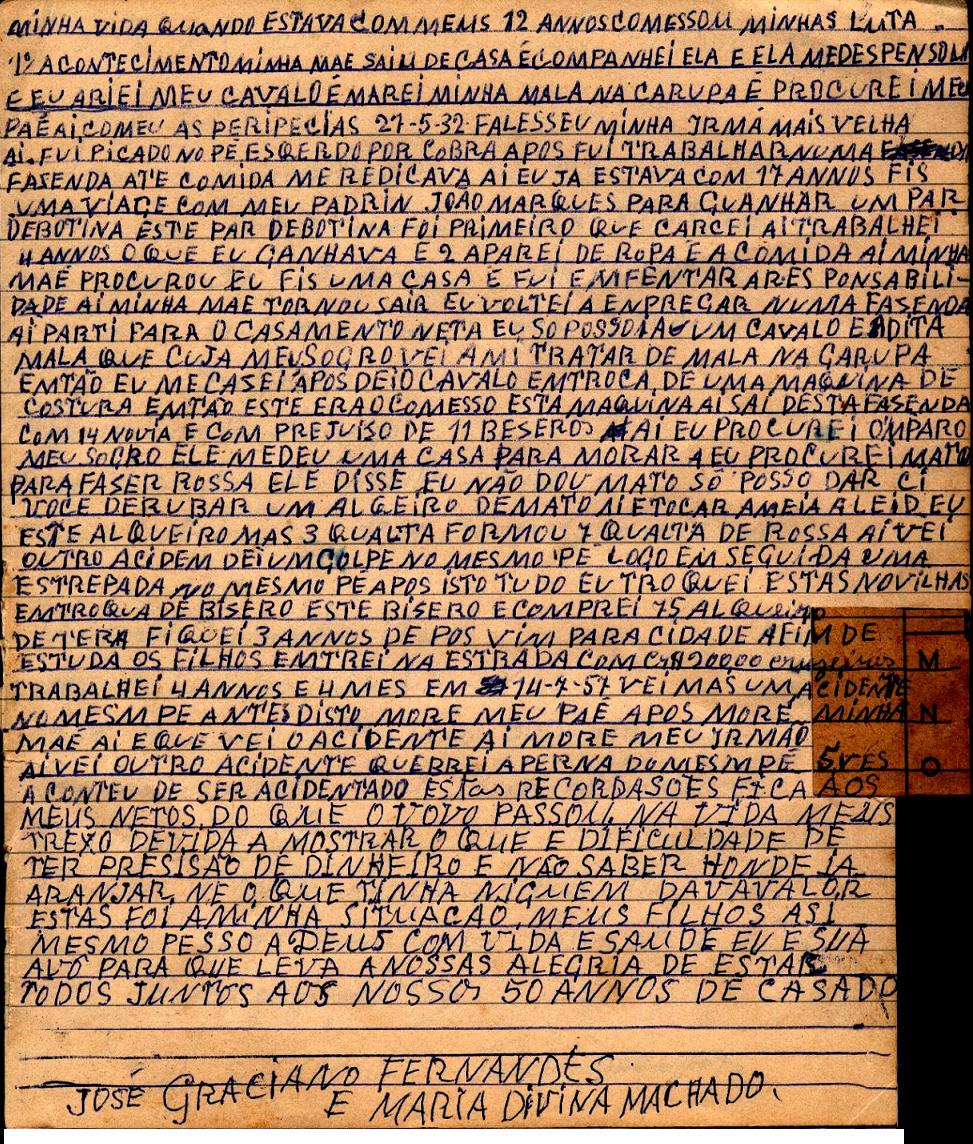 MINHA VIDA QUANDO ESTAVA COM MEMS 12 ANNOS COMESSOU MINHAS LUTA
1º ACONTECIMENTO MINHA MAE SAIU DE CASA É COMPANHEI ELA E ELA MEDESPENSOU
E EU ARIEI MEU CAVALO É MAREI MINHA MALA NA CARUPA É PROCUREI MEU
PAÉ AI COMEU AS PERIPECIAS 27-5-32 FALESSEU MINHA IRMÁ MAIS VELHA
AI. FUI PICADO NO PÉ ESQERDO POR COBRA APOS FUI TRABALHAR NUMA
FASENDA ATE COMIDA ME REDICAVA AI EU JA ESTAVA COM 17 ANNOS FIS
UMA VIAGE COM MEU PADRIN JOÃO MARQUES PARA GUANHAR UM PAR
DEBOTINA ESTE PAR DEBOTINA FOI PRIMEIRO QUE CARCEI AI TRABALHEI
4 ANNOS O QUE EU GANHAVA É 2 APAREI DE ROPA E A COMIDA AI MINHA
MAÉ PROCUROU EU FIS UMA CASA E FUI EMFENTAR ARES PONSABILI-
DADE AI MINHA MAE TORNOU SAIR EU VOLTEI A ENPREGAR NUMA FASENDA
AI PARTI PARA O CASAMENTO NETA EU SO POSSOIA UM CAVALO E ADITA
MALA QUE CUJA MEU SOGRO VEI AMI TRATAR DE MALA NA GARUPA
EMTÃO EU ME CASEI APOS DEI O CAVALO EMTROCA DE UMA MAQUINA DE
COSTURA EMTÃO ESTE ERA O COMESSO ESTA MAQUINA AI SAI DESTA FASENDA
COM 14 NOVIA E COM PREJUISO DE 11 BESEROS AI EU PROCUREI OMPARO
MEU SOGRO ELE MEDEU UMA CASA PARA MORAR AEU PROCUREI MATO
PARA FASER ROSSA ELE DISSE EU NÃO DOU MATO SÓ POSSO DAR CI
VOCE DERUBAR UM ALGEIRO DEMATO AI ETOCAR AMEIA ALEID EU
ESTE ALQUEIRO MAS 3 QUALTA FORMOU 7 QUALTA DE ROSSA AI VEI
OUTRO ACIDEM DEI UM GOLPE NO MESMO PÉ LOGO EM SEGUIDA UMA
ESTREPADA NO MESMO PÉ APOS ISTO TUDO EU TROQUEI ESTAS NOVILHAS
EMTROQUA DE BISERO ESTE BISERO E COMPREI 75 ALQueiro
DE TERA FIQUEI 3 ANNOS DE POS VIM PARA CIDADE AFIM DE
ESTUDA OS FILHOS EMTREI NA ESTRADA COM Cr$20000 cruzeiros M
TRABALHEI 4 ANNOS E 4 MES EM 14-7-57 VEI MAS UM ACIDENTE
NOMESM PE ANTES DISTO MORE MEU PAÉ APOS MORE MINHA N
MAÉ AI E QUE VEI O ACIDENTE AI MORE MEU IRMÃO
AI VEI OUTRO ACIDENTE QUERREI APERNA DOMESM PÉ 5 VES O
A CONTEU DE SER ACIDENTADO ESTas RECORDASOES FICA AOS
MEUS NETOS DO QUE O VOVO PASSOU NA VIDA MEUS
TREXO DEVIDA A MOSTRAR O QUE E DIFICULDADE DE
TER PRESISÃO DE DINHEIRO E NÃO SABER HONDE IA
ARANJAR NE O QUE TINHA NIGUEM DAVAVALOR
ESTAS FOI AMINHA SITUACAO, MEUS FILHOS ASI
MESMO PESSO A DEUS COM VIDA E SAUDE EU E SUA
AVÓ PARA QUE LEVA ANOSSAS ALEGRIA DE ESTAR
TODOS JUNTOS AOS NOSSOS 50 ANNOS DE CASADO
JOSÉ GRACIANO FERNANDES
E MARIA DIVINA MACHADO.